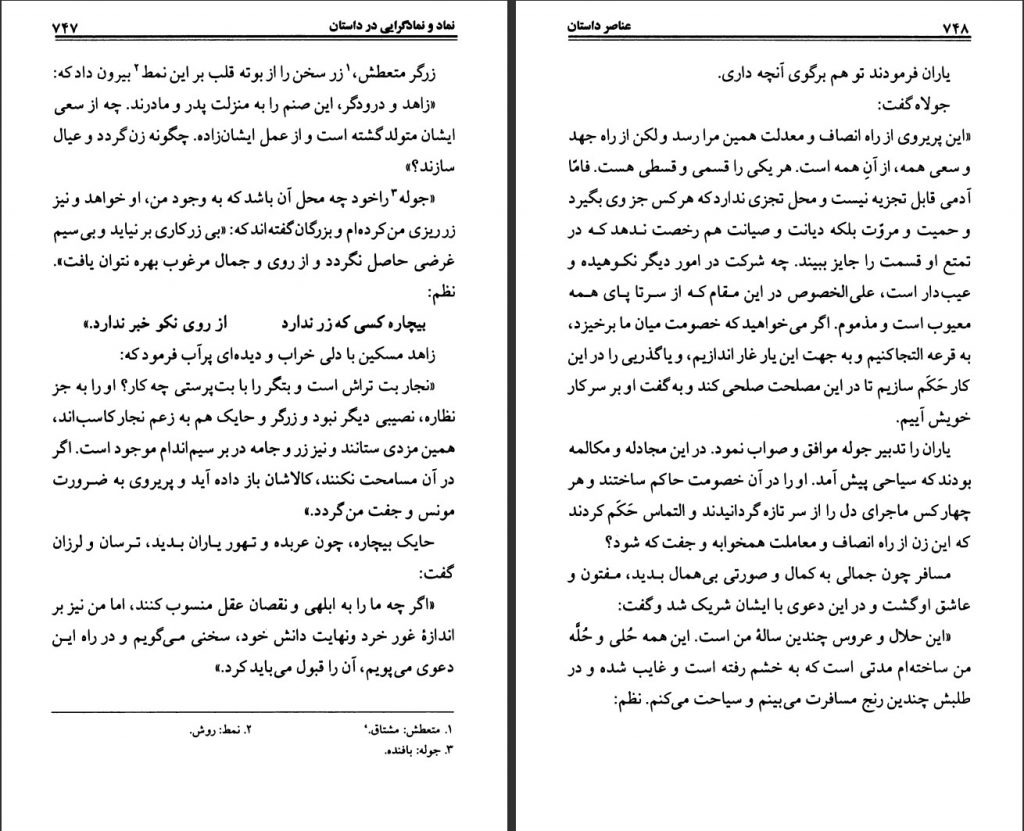 نماد و نمادگرایی در داستان ۷۴۷
زرگر متعطش،۱ زر سخن را از بوته قلب بر این نمط۲ بیرون داد که:
«زاهد و درودگر، این صنم را به منزلت پدر و مادرند. چه از سعی
ایشان متولد گشته است و از عمل ایشان‌زاده. چگونه زن گردد و عیال
سازند؟»
«جوله۳ را خود چه محل آن باشد که به وجود من، او خواهد و نیز
زر ریزی من کرده‌ام و بزرگان گفته‌اند که: «بی زر کاری بر نیاید و بی‌سیم
غرضی حاصل نگردد و از روی و جمال مرغوب بهره نتوان یافت».
نظم:
بیچاره کسی که زر ندارد از روی نکو خبر ندارد.»
زاهد مسکین با دلی خراب و دیده‌ای پرآب فرمود که:
«نجار بت تراش است و بتگر را با بت‌پرستی چه کار؟ او را به جز
نظاره، نصیبی دیگر نبود و زرگر و حایک هم به زعم نجار کاسب‌اند،
همین مزدی ستانند و نیز زر و جامه در بر سیم‌اندام موجود است. اگر
در آن مسامحت نکنند، کالاشان باز داده آید و پریروی به ضرورت
مونس و جفت من گردد.»
حایک بیچاره، چون عربده و تهور یاران بدید، ترسان و لرزان
گفت:
«اگر چه ما را به ابلهی و نقصان عقل منسوب کنند، اما من نیز بر
اندازهٔ غور خرد ونهایت دانش خود، سخنی می‌گویم و در راه این
دعوی می‌پویم، آن را قبول می‌باید کرد.»
۱. متعطش: مشتاق. ۲. نمط: روش.
۳. جوله: بافنده.
۷۴۸ عناصر داستان
یاران فرمودند تو هم برگوی آنچه داری.
جولاه گفت:
«این پریروی از راه انصاف و معدلت همین مرا رسد و لکن از راه جهد
و سعی همه، از آنِ همه است. هر یکی را قسمی و قسطی هست. فامّا
آدمی قابل تجزیه نیست و محل تجزی ندارد که هر کس جز وی بگیرد
و حمیت و مروّت بلکه دیانت و صیانت هم رخصت ندهد که در
تمتع او قسمت را جایز ببیند. چه شرکت در امور دیگر نکوهیده و
عیب‌دار است، علی‌الخصوص در این مقام که از سر تا پای همه
معیوب است و مذموم. اگر می‌خواهید که خصومت میان ما برخیزد،
به قرعه التجا کنیم و به جهت این یار غار اندازیم، و یا گذریی را در این
کار حَکَم سازیم تا در این مصلحت صلحی کند و به گفت او بر سر کار
خویش آییم.
یاران را تدبیر جوله موافق و صواب نمود. در این مجادله و مکالمه
بودند که سیاحی پیش آمد. او را در آن خصومت حاکم ساختند و هر
چهار کس ماجرای دل را از سر تازه گردانیدند و التماس حَکَم کردند
که این زن از راه انصاف و معاملت همخوابه و جفت که شود؟
مسافر چون جمالی به کمال و صورتی بی‌همال بدید، مفتون و
عاشق او گشت و در این دعوی با ایشان شریک شد و گفت:
«این حلال و عروس چندین سالهٔ من است. این همه حُلی و حُلَّه
من ساخته‌ام مدتی است که به خشم رفته است و غایب شده و در
طلبش چندین رنج مسافرت می‌بینم و سیاحت می‌کنم. نظم: